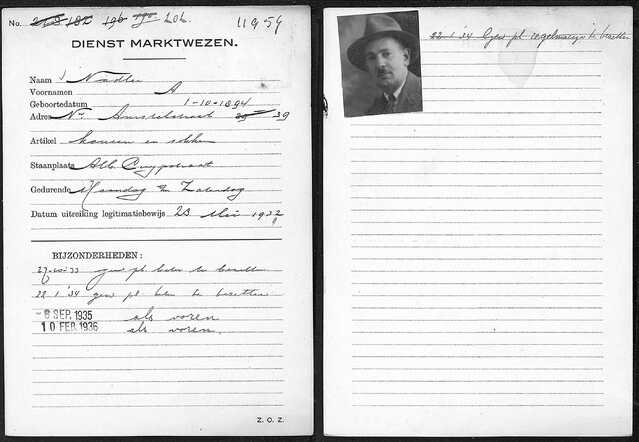 No. 218 182 196 190 202. 11959
DIENST MARKTWEZEN.
Naam Nadler
Voornamen A
Geboortedatum 1-10-1894
Adres Nw. Amstelstraat 39
Artikel kousen en sokken
Staanplaats Alb. Cuypstraat
Gedurende Maandag en Zaterdag
Datum uitreiking legitimatiebewijs 23 Mei 1932
BIJZONDERHEDEN:
gew pl beter te bezetten
22 1 '34 gew pl beter te bezetten
- 6 SEP. 1935 als voren
10 FEB. 1936 als voren.
Z. O. Z.
22-1 '34 Gew pl regelmatiger te bezetten